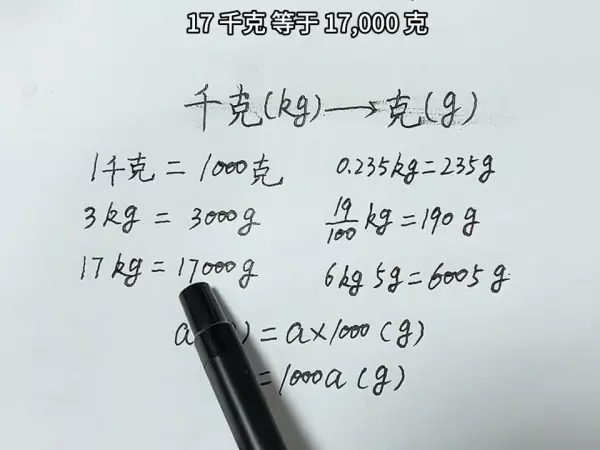 17 千克 等于 17,000 克
千克(kg)→克(g)
1千克 = 1000克
3kg = 3000g
17kg = 17000g
0.235kg=235g
19/100 kg=190g
6kg 5g=6005g
a ) = a×1000 (g)
=1000a (g)